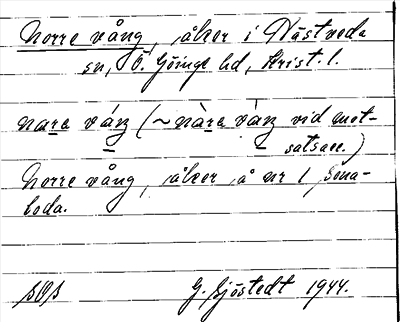 Norre vång, åker i Västveda
sn, Ö. Göinge hd, Krist. l.
nara váŋ (~ nàra vàŋ vid mot-
satsen.)
Norre vång, åker å nr 1 Sma-
boda.
G. Sjöstedt 1944.